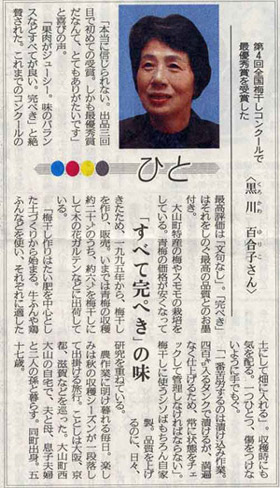 第4回全国梅干しコンクールで
最優秀賞を受賞した
くろ かわ ゆ り こ
〈黒川 百合子さん〉
ひと
「すべて完ぺき」の味
「本当に信じられない。出品三回
目で初めての受賞。しかも最優秀賞
だなんて、とてもありがたいです」
と喜びの声。
「果肉がジューシー。味のバラン
スなどすべてが良い。完ぺき」と絶
賛された。これまでのコンクールの
最高評価は「文句なし」。「完ぺき」
はそれをしのぐ最高の品質とのお墨
付き。
大山町特産の梅やスモモの栽培を
している。青梅の価格が安くなって
きたため、一九九五年から、梅干し
を作り、販売。いまでは青梅の収穫
約二十㌧のうち、約六㌧を梅干しに
して木の花ガルテンなどに出荷して
いる。
「梅干し作りはたい肥を中心とし
た土づくりから始まる。牛ふんや鶏
ふんなどを使い、それぞれに適した
土にして畑に入れる」。収穫時にも
気を配る。一つひとつ、傷をつけな
いように手でもぐ。
「一番苦労するのは漬け込み作業。
四百㌔入るタンクで漬けるが、満遍
なく上げるため、常に状態をチェ
ックして管理しなければならない」。
梅干しに使うシソはもちろん自家
製。品質を上げ
るのに、日々、
研究を重ねている。
農作業に明け暮れる毎日。楽し
みは秋の収穫シーズンが一段落し
て出掛ける旅行。ことしは大阪、京
都、滋賀などを巡った。大山町西
大山の自宅で、夫と母、息子夫婦
と二人の孫と暮らす。同町出身。五
十七歳。